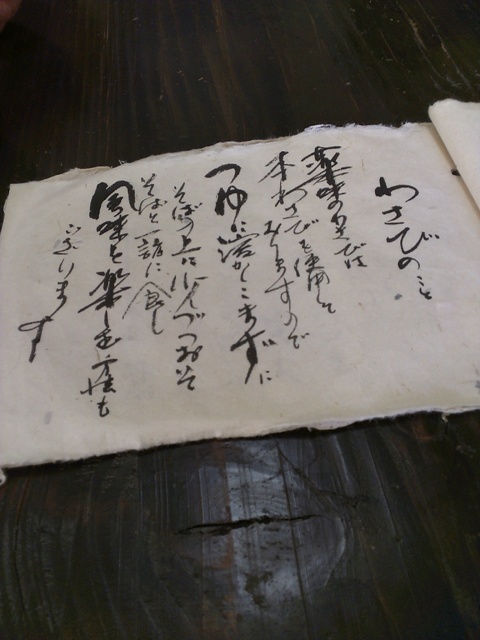 わさびのこと
薬味のわさびは
本わさびを使用して
おりますので
つゆに溶かしこまずに
そばの上に少しづつおいて
そばと一諸に食し
風味を楽しむ方法も
ございます